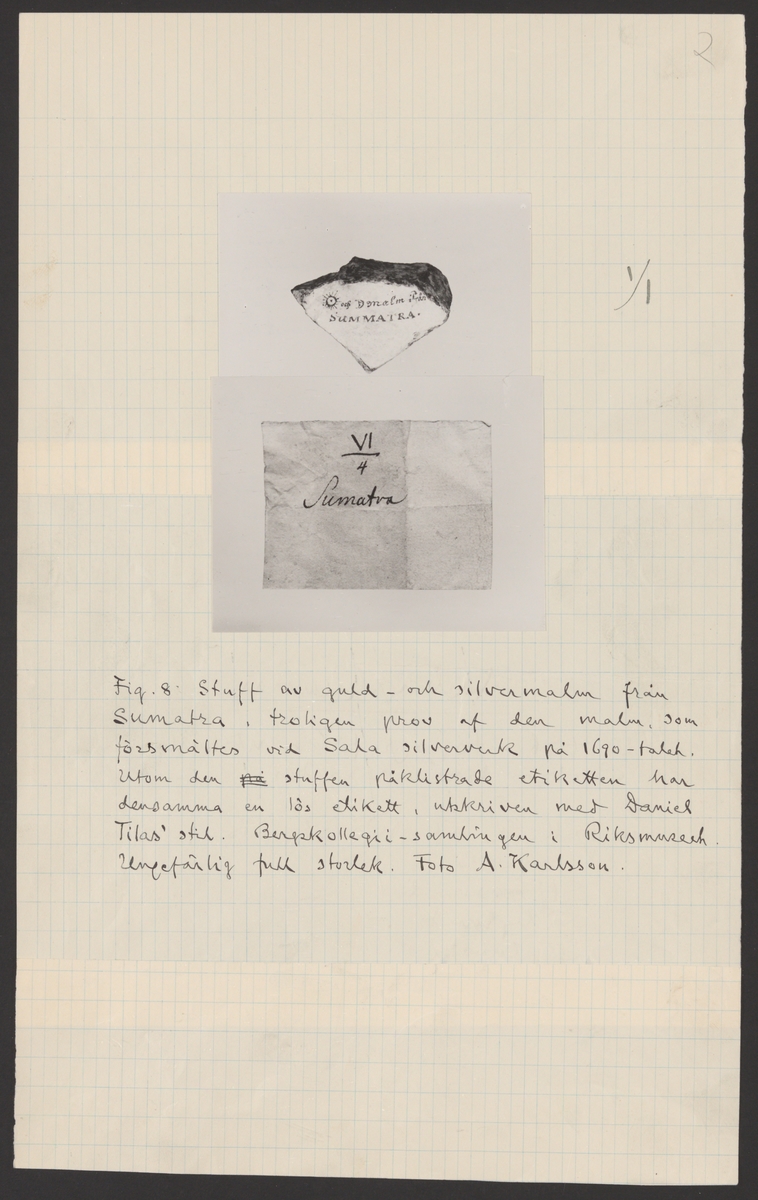 2
1/1
☉ och ☽ malm från
SUMMATRA.
VI
4
Sumatra
Fig. 8. Stuff av guld- och silvermalm från
Sumatra, troligen prov af den malm, som
försmältes vid Sala silververk på 1690-talet.
Utom den på stuffen påklistrade etiketten har
densamma en lös etikett, utskriven med Daniel
Tilas' stil. Bergskollegii-samlingen i Riksmuseet.
Ungefärlig full storlek. Foto A. Karlsson.